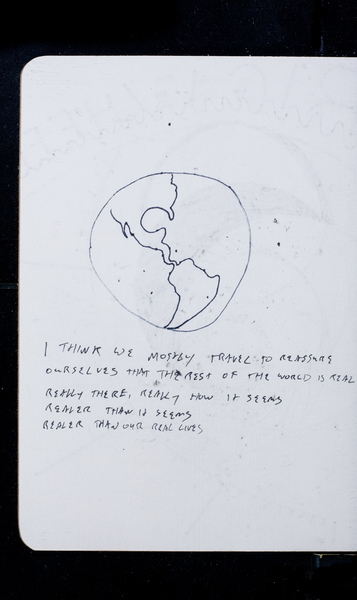 I THINK WE MOSTLY TRAVEL TO REASSURE
OURSELVES THAT THE REST OF THE WORLD IS REAL
REALLY THERE, REALLY HOW IT SEEMS
REALER THAN IT SEEMS
REALER THAN OUR REAL LIVES